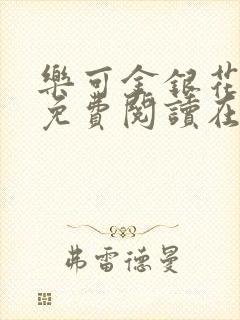 樂可金銀花
免費閱讀在
弗雷德曼